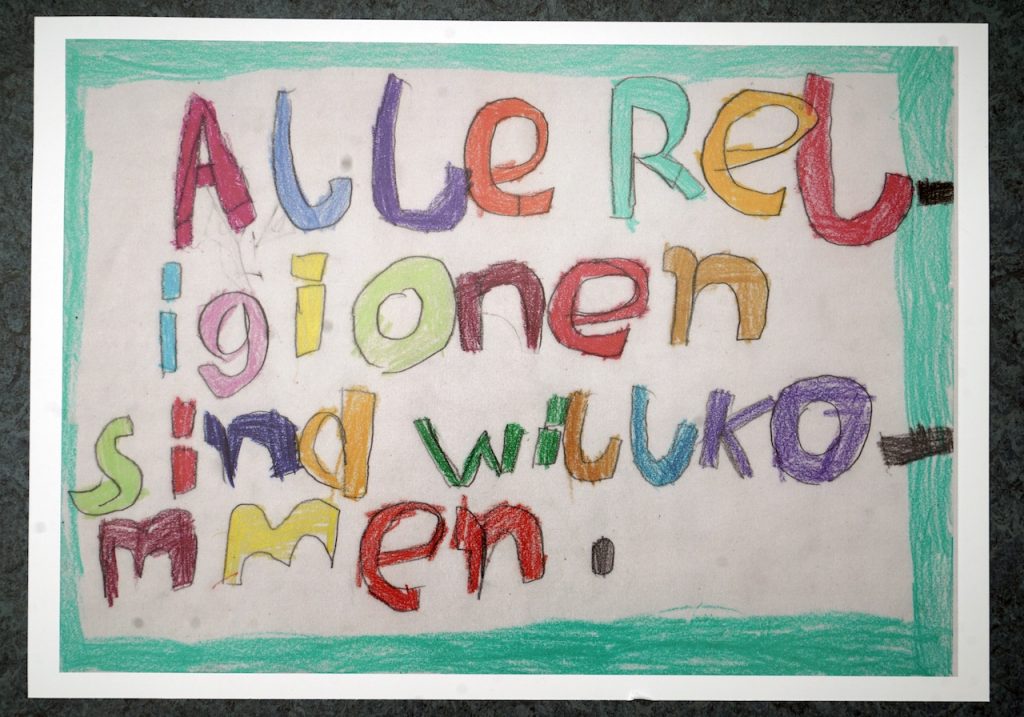 Alle Rel-
igionen
sind willko-
mmen.